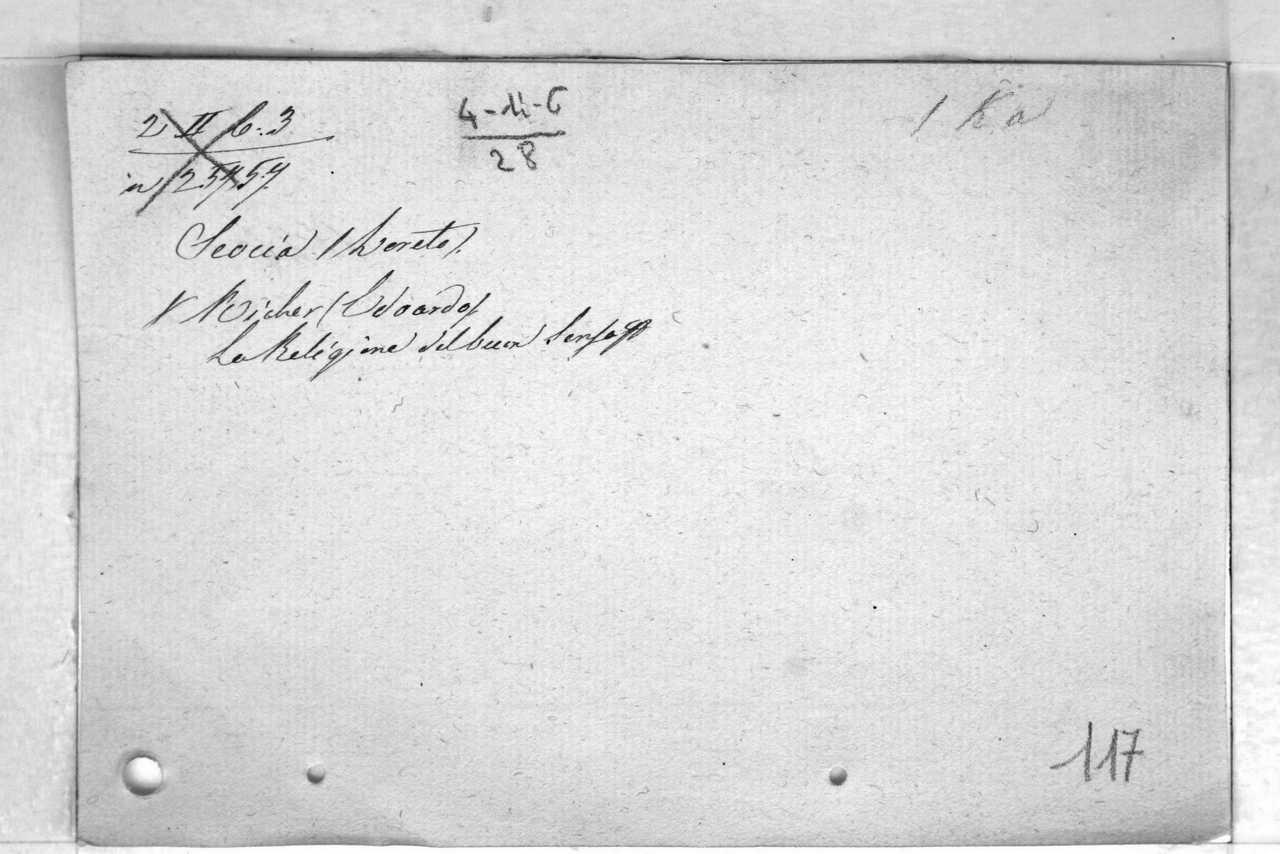 2 II b. 3
in 12 5457
4-11-G
28
1 Ka
Scocia (Loreto).
V Richer (Edoardo)
La Religione del buon Senso
117